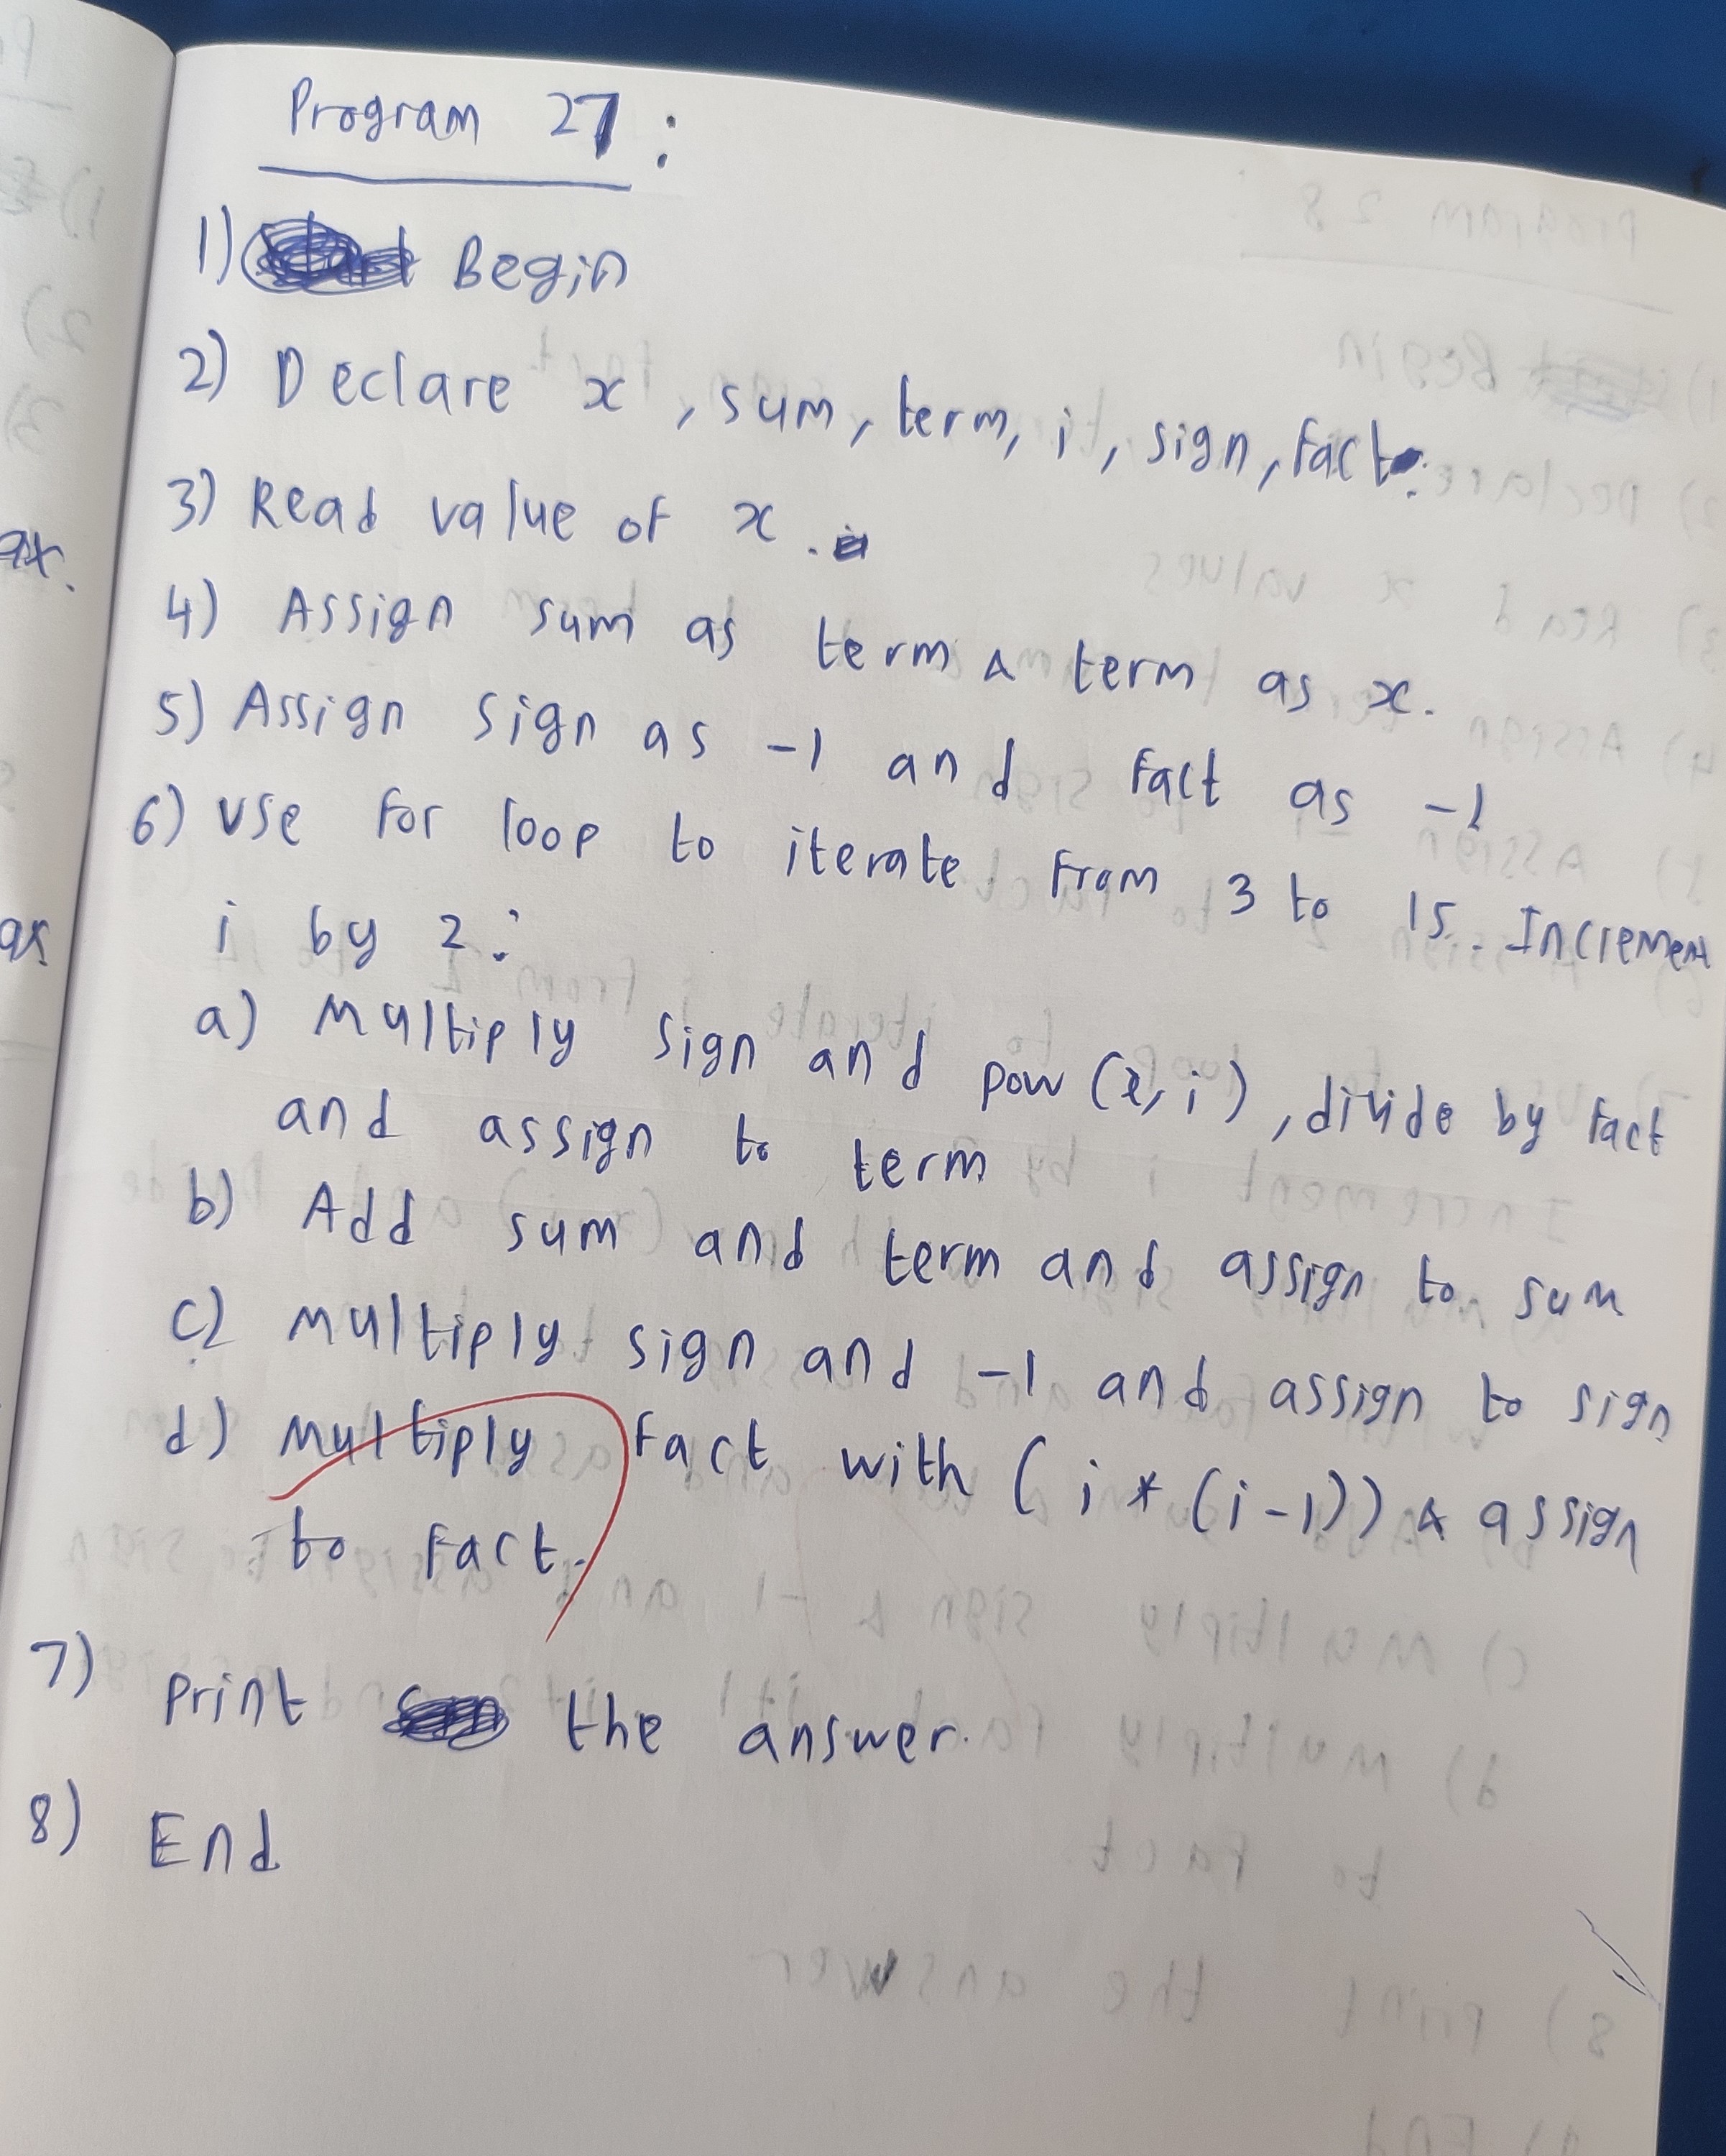 Program 27 :
1) Begin
2) Declare x , sum, term, i, sign, fact.
3) Read value of x .
4) Assign sum as term & term as x.
5) Assign sign as -1 and fact as -1
6) Use for loop to iterate from 3 to 15. Increment
i by 2 :
a) Multiply sign and pow (x, i) , divide by fact
and assign to term
b) Add sum and term and assign to sum
c) Multiply sign and -1 and assign to sign
d) Multiply fact with ( i * (i-1)) & assign
to fact.
7) Print the answer.
8) End
ax.
as